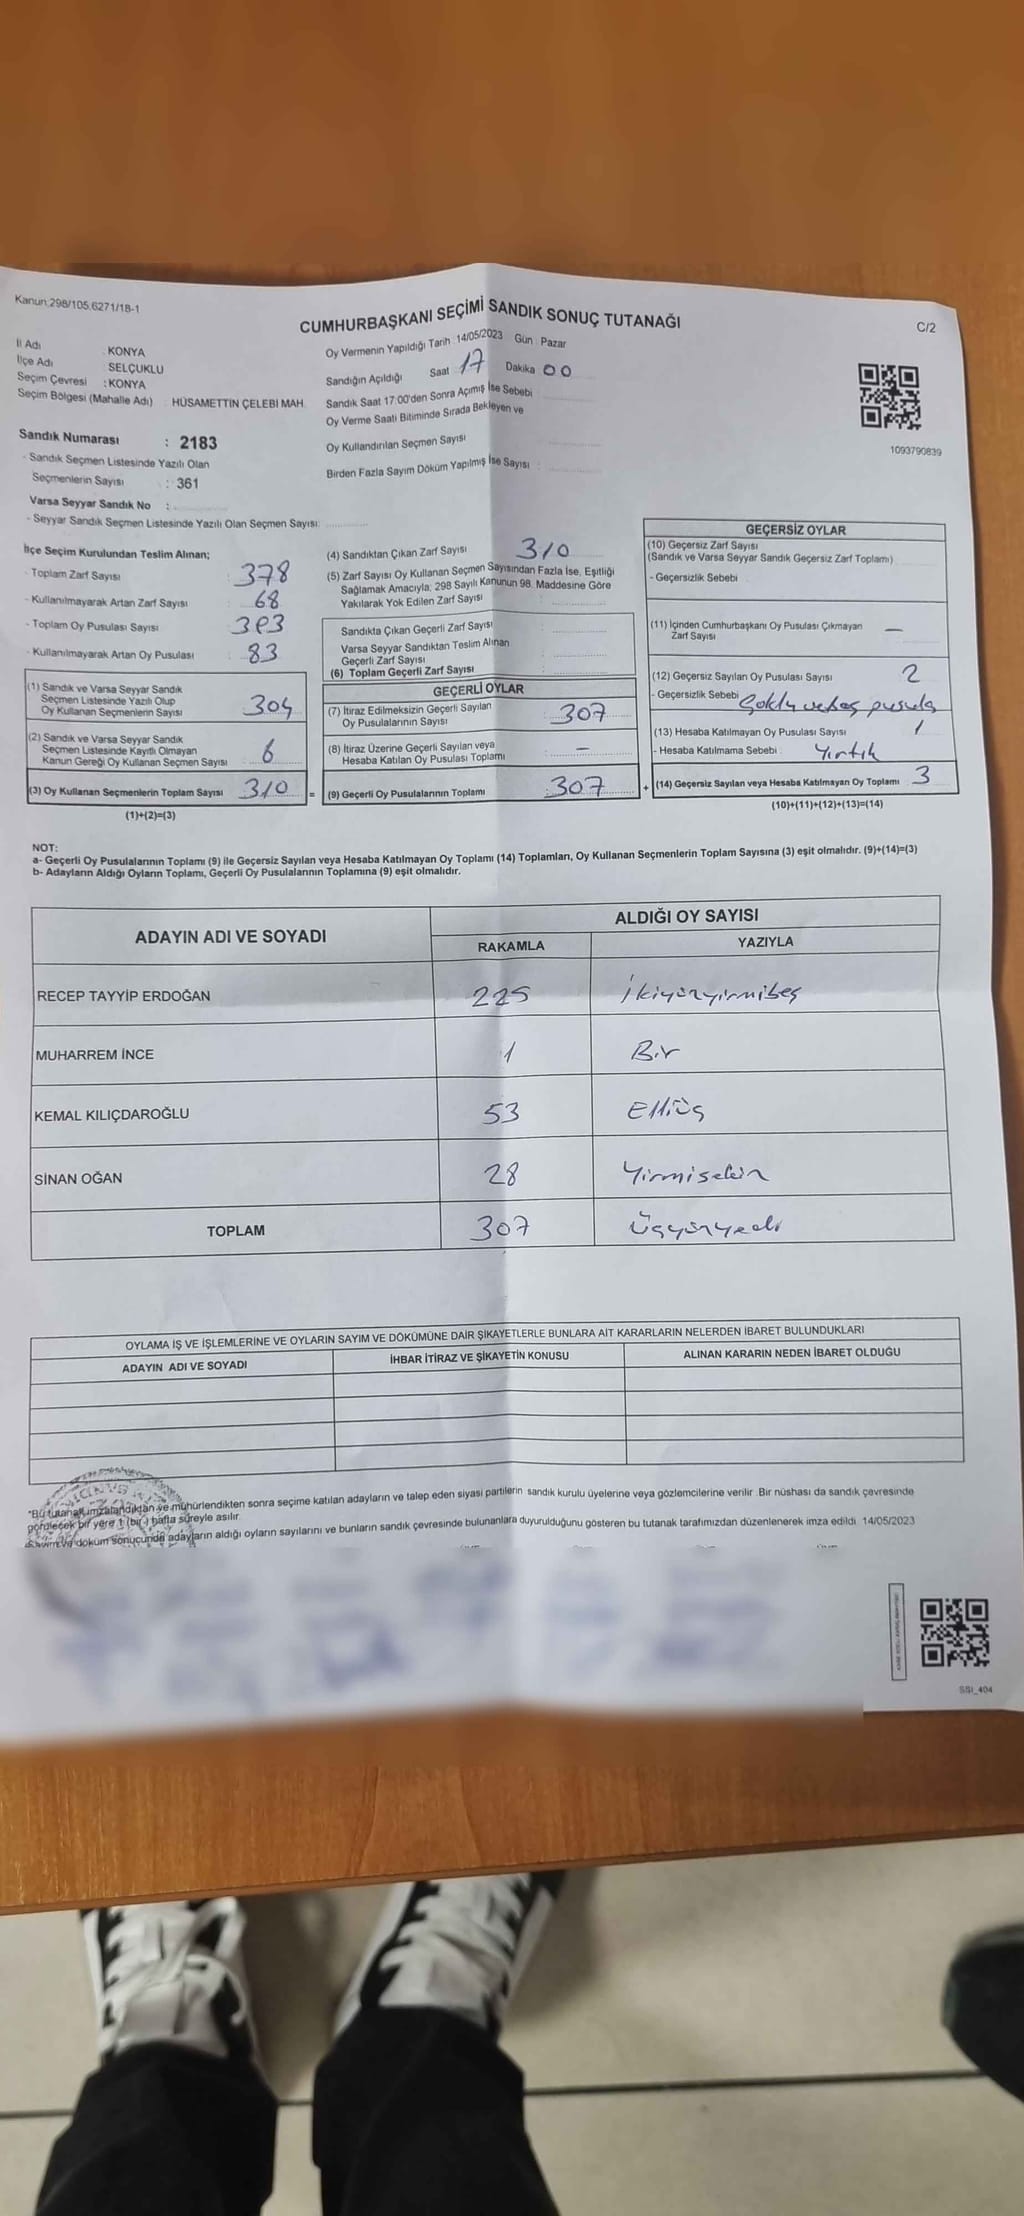 Kanun:298/105.6271/18-1
CUMHURBAŞKANI SEÇİMİ SANDIK SONUÇ TUTANAĞI
C/2
İl Adı : KONYA
İlçe Adı : SELÇUKLU
Seçim Çevresi : KONYA
Seçim Bölgesi (Mahalle Adı) : HÜSAMETTİN ÇELEBİ MAH.
Sandık Numarası : 2183
- Sandık Seçmen Listesinde Yazılı Olan
Seçmenlerin Sayısı : 361
Varsa Seyyar Sandık No :
- Seyyar Sandık Seçmen Listesinde Yazılı Olan Seçmen Sayısı:
Oy Vermenin Yapıldığı Tarih : 14/05/2023 Gün : Pazar
Sandığın Açıldığı Saat 17 Dakika 00
Sandık Saat 17:00'den Sonra Açımış İse Sebebi
Oy Verme Saati Bitiminde Sırada Bekleyen ve
Oy Kullandırılan Seçmen Sayısı
Birden Fazla Sayım Döküm Yapılmış İse Sayısı :
1093790839
İlçe Seçim Kurulundan Teslim Alınan;
- Toplam Zarf Sayısı : 378
- Kullanılmayarak Artan Zarf Sayısı : 68
- Toplam Oy Pusulası Sayısı : 393
- Kullanılmayarak Artan Oy Pusulası : 83
(1) Sandık ve Varsa Seyyar Sandık
Seçmen Listesinde Yazılı Olup
Oy Kullanan Seçmenlerin Sayısı 304
(2) Sandık ve Varsa Seyyar Sandık
Seçmen Listesinde Kayıtlı Olmayan
Kanun Gereği Oy Kullanan Seçmen Sayısı 6
(3) Oy Kullanan Seçmenlerin Toplam Sayısı 310 =
(1)+(2)=(3)
(4) Sandıktan Çıkan Zarf Sayısı 310
(5) Zarf Sayısı Oy Kullanan Seçmen Sayısından Fazla İse, Eşitliği
Sağlamak Amacıyla; 298 Sayılı Kanunun 98. Maddesine Göre
Yakılarak Yok Edilen Zarf Sayısı :
Sandıkta Çıkan Geçerli Zarf Sayısı :
Varsa Seyyar Sandıktan Teslim Alınan
Geçerli Zarf Sayısı :
(6) Toplam Geçerli Zarf Sayısı :
GEÇERLİ OYLAR
(7) İtiraz Edilmeksizin Geçerli Sayılan
Oy Pusulalarının Sayısı : 307
(8) İtiraz Üzerine Geçerli Sayılan veya
Hesaba Katılan Oy Pusulası Toplamı : —
(9) Geçerli Oy Pusulalarının Toplamı : 307 +
GEÇERSİZ OYLAR
(10) Geçersiz Zarf Sayısı
(Sandık ve Varsa Seyyar Sandık Geçersiz Zarf Toplamı)
- Geçersizlik Sebebi
(11) İçinden Cumhurbaşkanı Oy Pusulası Çıkmayan
Zarf Sayısı —
(12) Geçersiz Sayılan Oy Pusulası Sayısı 2
- Geçersizlik Sebebi Çoklu ve boş pusula
(13) Hesaba Katılmayan Oy Pusulası Sayısı 1
- Hesaba Katılmama Sebebi : Yırtık
(14) Geçersiz Sayılan veya Hesaba Katılmayan Oy Toplamı 3
(10)+(11)+(12)+(13)=(14)
NOT:
a- Geçerli Oy Pusulalarının Toplamı (9) ile Geçersiz Sayılan veya Hesaba Katılmayan Oy Toplamı (14) Toplamları, Oy Kullanan Seçmenlerin Toplam Sayısına (3) eşit olmalıdır. (9)+(14)=(3)
b- Adayların Aldığı Oyların Toplamı, Geçerli Oy Pusulalarının Toplamına (9) eşit olmalıdır.
ADAYIN ADI VE SOYADI
ALDIĞI OY SAYISI
RAKAMLA YAZIYLA
RECEP TAYYİP ERDOĞAN 225 İkiyüzyirmibeş
MUHARREM İNCE 1 Bir
KEMAL KILIÇDAROĞLU 53 Elliüç
SİNAN OĞAN 28 Yirmisekiz
TOPLAM 307 Üçyüzyedi
OYLAMA İŞ VE İŞLEMLERİNE VE OYLARIN SAYIM VE DÖKÜMÜNE DAİR ŞİKAYETLERLE BUNLARA AİT KARARLARIN NELERDEN İBARET BULUNDUKLARI
ADAYIN ADI VE SOYADI İHBAR İTİRAZ VE ŞİKAYETİN KONUSU ALINAN KARARIN NEDEN İBARET OLDUĞU
"Bu tutanak imzalandıktan ve mühürlendikten sonra seçime katılan adayların ve talep eden siyasi partilerin sandık kurulu üyelerine veya gözlemcilerine verilir. Bir nüshası da sandık çevresinde
görülecek bir yere 1 (bir) hafta süreyle asılır.
Sayım ve döküm sonucunda adayların aldığı oyların sayılarını ve bunların sandık çevresinde bulunanlara duyurulduğunu gösteren bu tutanak tarafımızdan düzenlenerek imza edildi. 14/05/2023
SSI_404